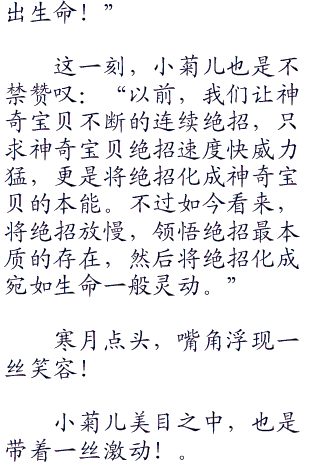 出生命！”
这一刻，小菊儿也是不
禁赞叹：“以前，我们让神
奇宝贝不断的连续绝招，只
求神奇宝贝绝招速度快威力
猛，更是将绝招化成神奇宝
贝的本能。不过如今看来，
将绝招放慢，领悟绝招最本
质的存在，然后将绝招化成
宛如生命一般灵动。”
寒月点头，嘴角浮现一
丝笑容！
小菊儿美目之中，也是
带着一丝激动！。